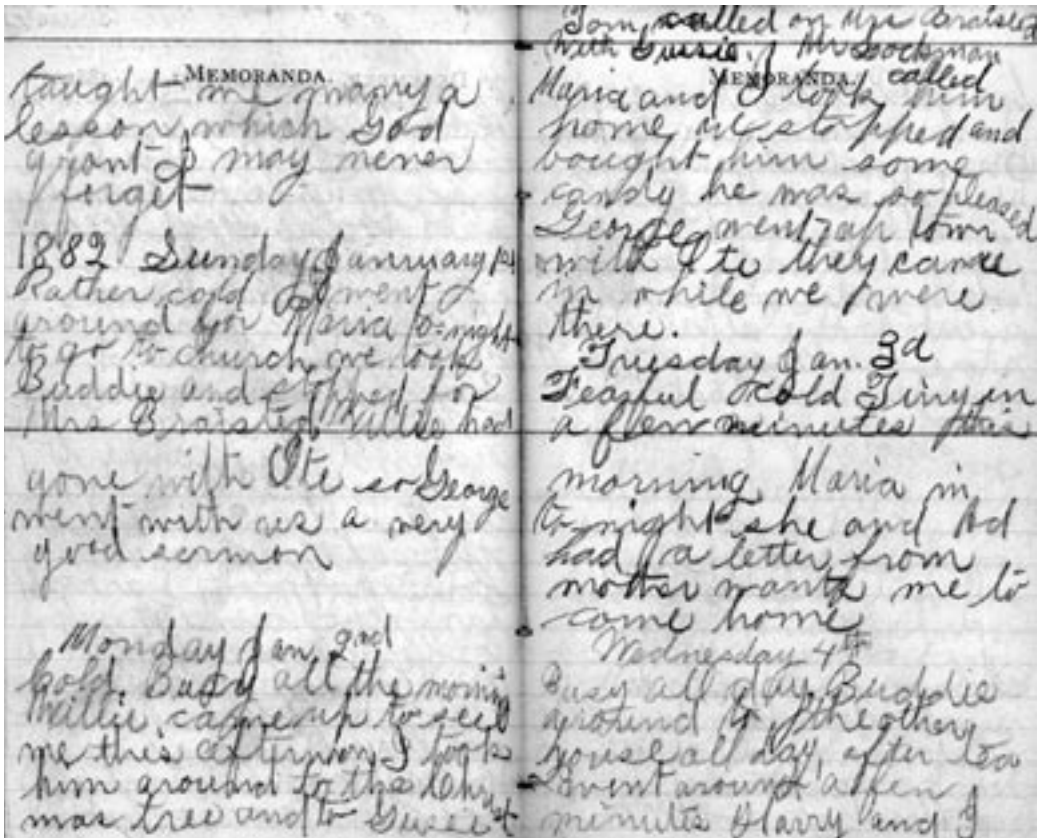 MEMORANDA.
taught me many a
lesson which God
grant I may never
forget
1882 Sunday January 1st
Rather cold I went
around for Maria to-night
to go to church, we took
Buddie and stopped for
Mrs Braisted Willie had
gone with Ite so George
went with us a very
good sermon
Monday Jan. 2nd
Cold. Busy all the morning
Willie came up to see
me this afternoon I took
him around to the Christ
mas tree and to Gussie's
Tom called on Mrs Braisted
with Gussie. Mr Lockman
called
MEMORANDA.
Maria and I took him
home we stopped and
bought him some
candy he was so pleased
George went up town
with Ite they came
in while we were
there.
Tuesday Jan. 3d
Fearful cold Tiny in
a few minutes this
morning, Maria in
to-night she and Ad
had a letter from
mother wants me to
come home
Wednesday 4th
Busy all day, Buddie
around to the other
house all day, after tea
went around a few
minutes Harry and I